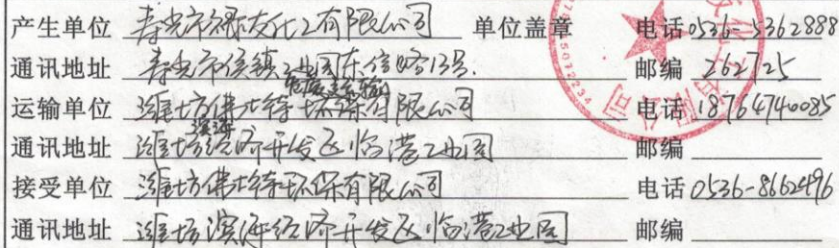 产生单位 寿光市绿友化工有限公司 单位盖章 电话 0536-5362888
通讯地址 寿光市侯镇工业园东信路13号 邮编 262725
运输单位 潍坊佛士特环保有限公司 电话 18764740085
通讯地址 潍坊滨海经济开发区临港工业园 邮编
接受单位 潍坊佛士特环保有限公司 电话 0536-8662496
通讯地址 潍坊滨海经济开发区临港工业园 邮编